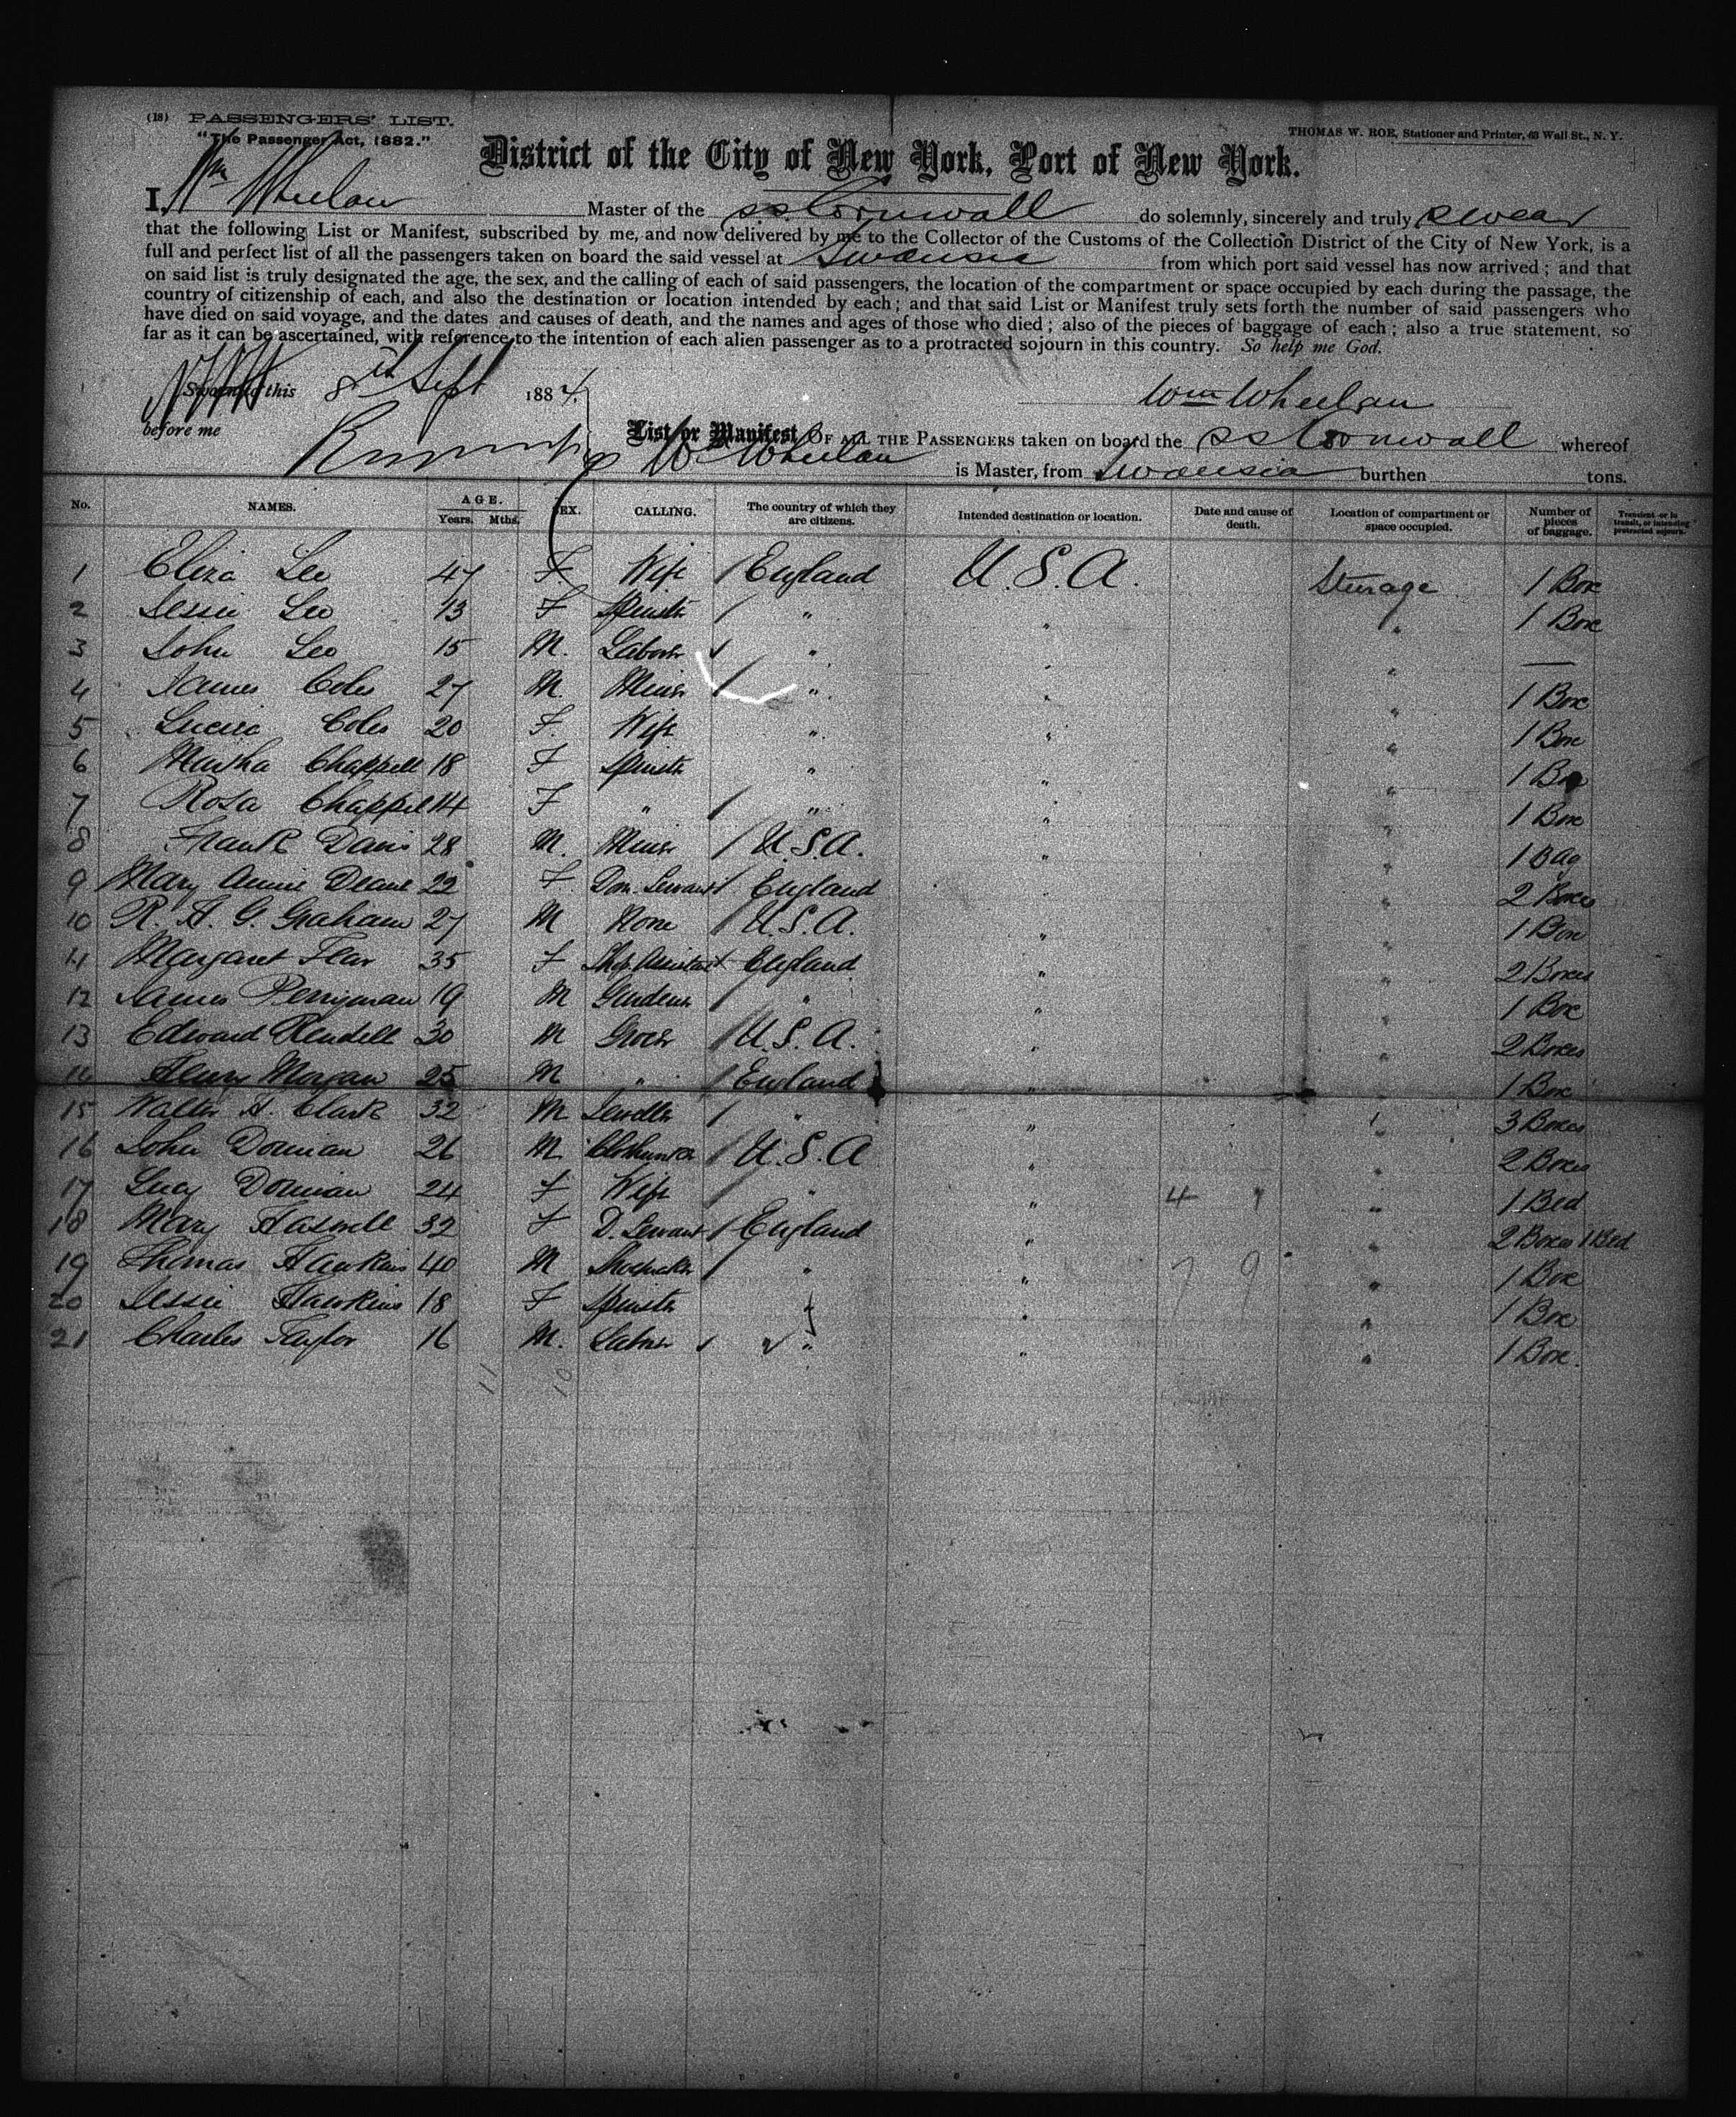 (18) PASSENGERS' LIST.
"The Passenger Act, 1882."
THOMAS W. ROE, Stationer and Printer, 63 Wall St., N. Y.
District of the City of New York, Port of New York.
I, Wm Wheelan Master of the ss Cornwall do solemnly, sincerely and truly swear
that the following List or Manifest, subscribed by me, and now delivered by me to the Collector of the Customs of the Collection District of the City of New York, is a
full and perfect list of all the passengers taken on board the said vessel at Swansia from which port said vessel has now arrived; and that
on said list is truly designated the age, the sex, and the calling of each of said passengers, the location of the compartment or space occupied by each during the passage, the
country of citizenship of each, and also the destination or location intended by each; and that said List or Manifest truly sets forth the number of said passengers who
have died on said voyage, and the dates and causes of death, and the names and ages of those who died; also of the pieces of baggage of each; also a true statement, so
far as it can be ascertained, with reference to the intention of each alien passenger as to a protracted sojourn in this country. So help me God.
Sworn to this 8th Sept 1884
Wm Wheelan
before me
List or Manifest OF ALL THE PASSENGERS taken on board the ss Cornwall whereof
Wm Wheelan is Master, from Swansia burthen tons.
No. NAMES. AGE. Years. Mths. SEX. CALLING. The country of which they are citizens. Intended destination or location. Date and cause of death. Location of compartment or space occupied. Number of pieces of baggage. Transient or in transit, or intending protracted sojourn.
1 Eliza Lee 47 F Wife / England U.S.A. Steerage 1 Box
2 Jessie Lee 13 F Spinstr / " " " 1 Box
3 John Lee 15 M. Laborer " " " —
4 James Coles 27 M. Miner / " " " 1 Box
5 Coles 20 F. Wife " " " 1 Box
6 Martha Chappell 18 F Spinstr " " " 1 Box
7 Rosa Chappell 14 F " / " " " 1 Box
8 Frank Davis 28 M. Miner / U.S.A. " " 1 Bag
9 Mary Annie Deane 22 F. Dom. Servant / England " " 2 Boxes
10 R. H. G. Graham 27 M None / U.S.A. " " 1 Box
11 Margaret 35 F Shop Assistant England " " 2 Boxes
12 James Perryman 19 M Gardener / " " " 1 Box
13 Edward Rendell 30 M Grocer / U.S.A. " " 2 Boxes
14 Henry Morgan 25 M " / England " " 1 Box
15 Walter H. Clark 32 M Jeweller / " " " 3 Boxes
16 John Dornan 26 M / U.S.A " " 2 Boxes
17 Lucy Dornan 24 F Wife / " " 4 1 " 1 Bed
18 Mary 32 F D. Servant / England " " 2 Boxes 1 Bed
19 Thomas Hawkins 40 M Shoemaker / " " 7 9 " 1 Box
20 Jessie Hawkins 18 F Spinstr " " 1 Box
21 Charles Taylor 16 M. Laborer " " " 1 Box.
11 10